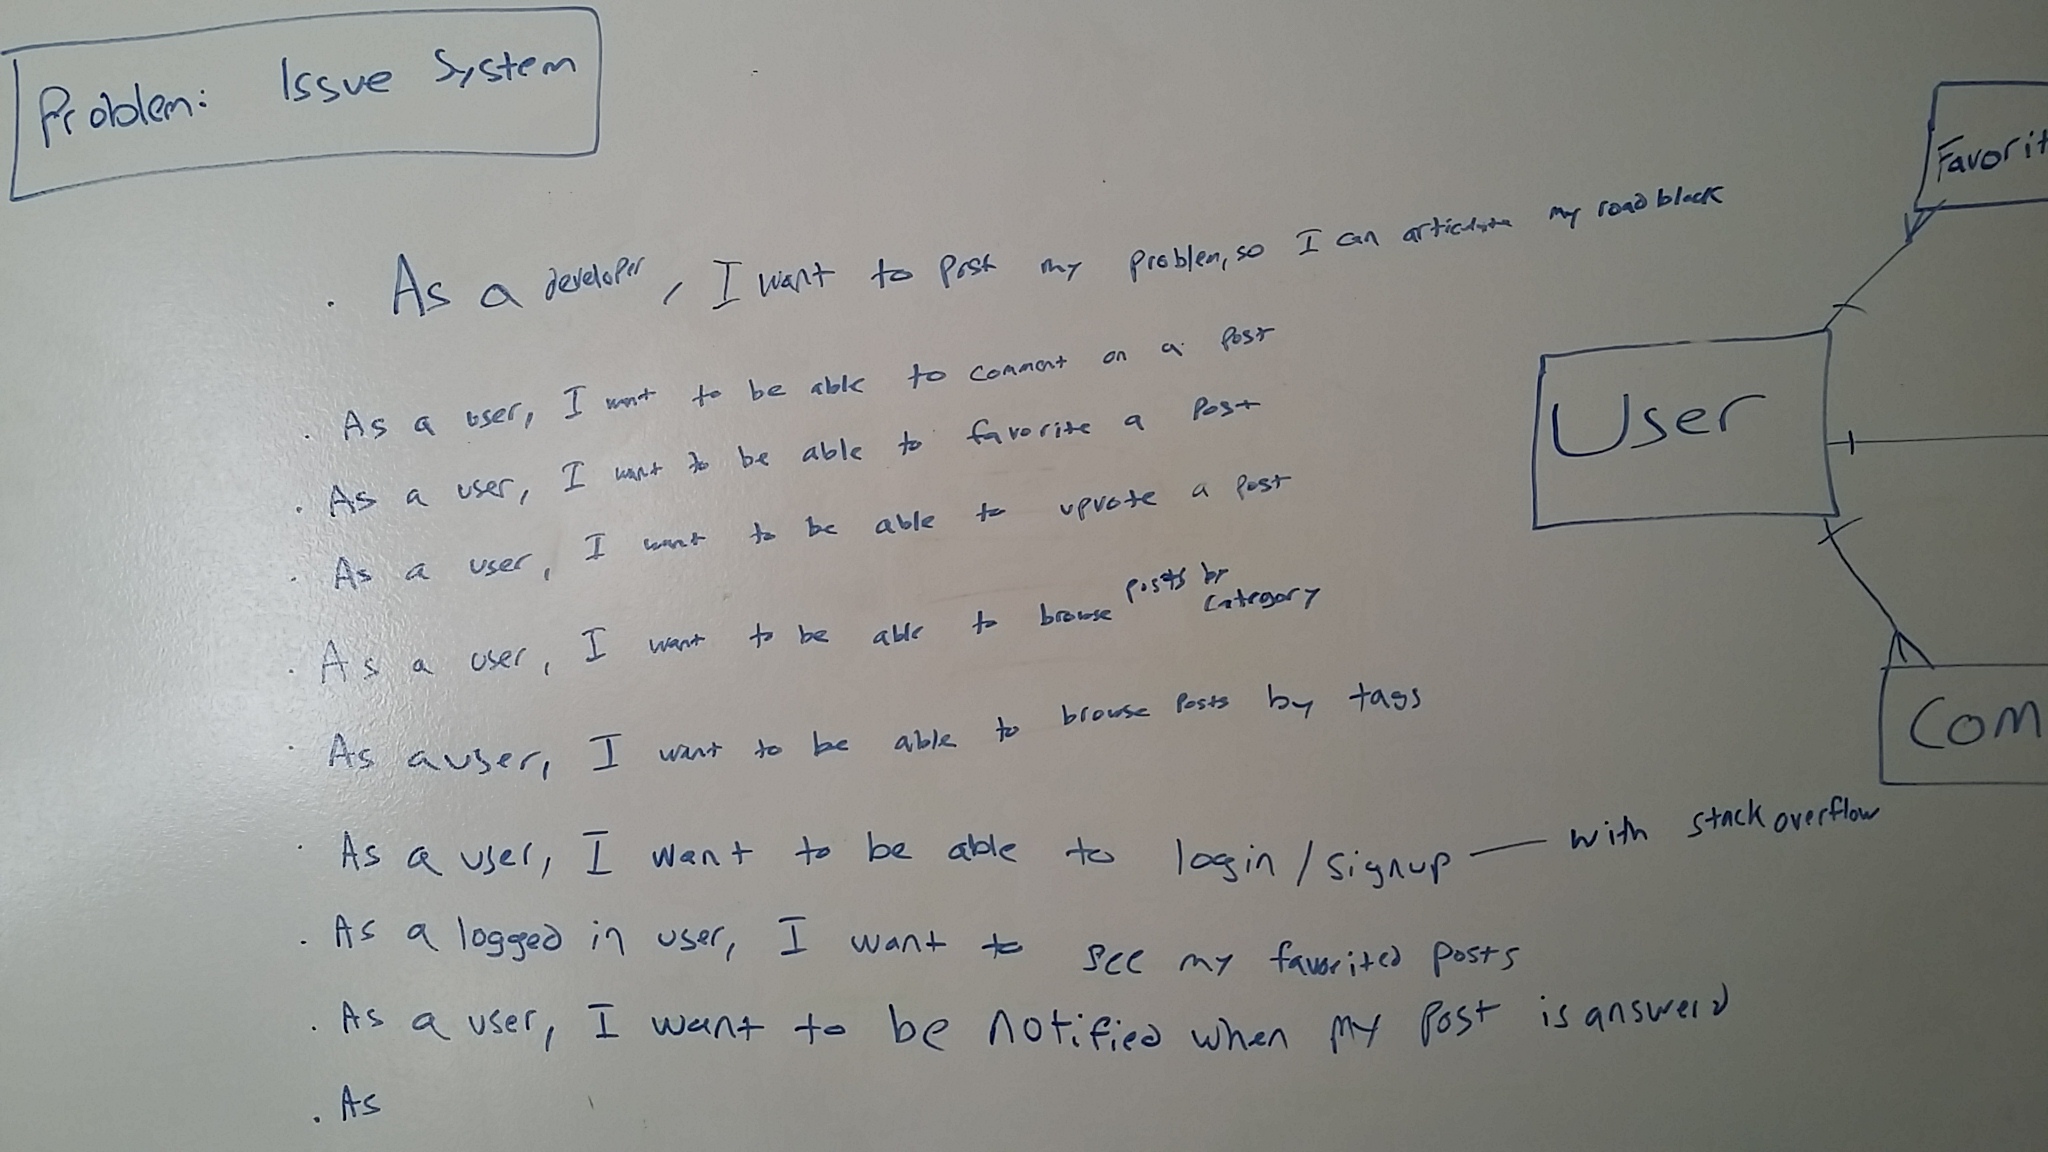 Problem: Issue System
· As a developer, I want to post my problem, so I can articulate my road block
· As a user, I want to be able to comment on a post
· As a user, I want to be able to favorite a post
· As a user, I want to be able to upvote a post
· As a user, I want to be able to browse posts by category
· As a user, I want to be able to browse posts by tags
· As a user, I want to be able to login / signup — with stack overflow
· As a logged in user, I want to see my favorited posts
· As a user, I want to be notified when my post is answerd
· As
Favorit
User
Com